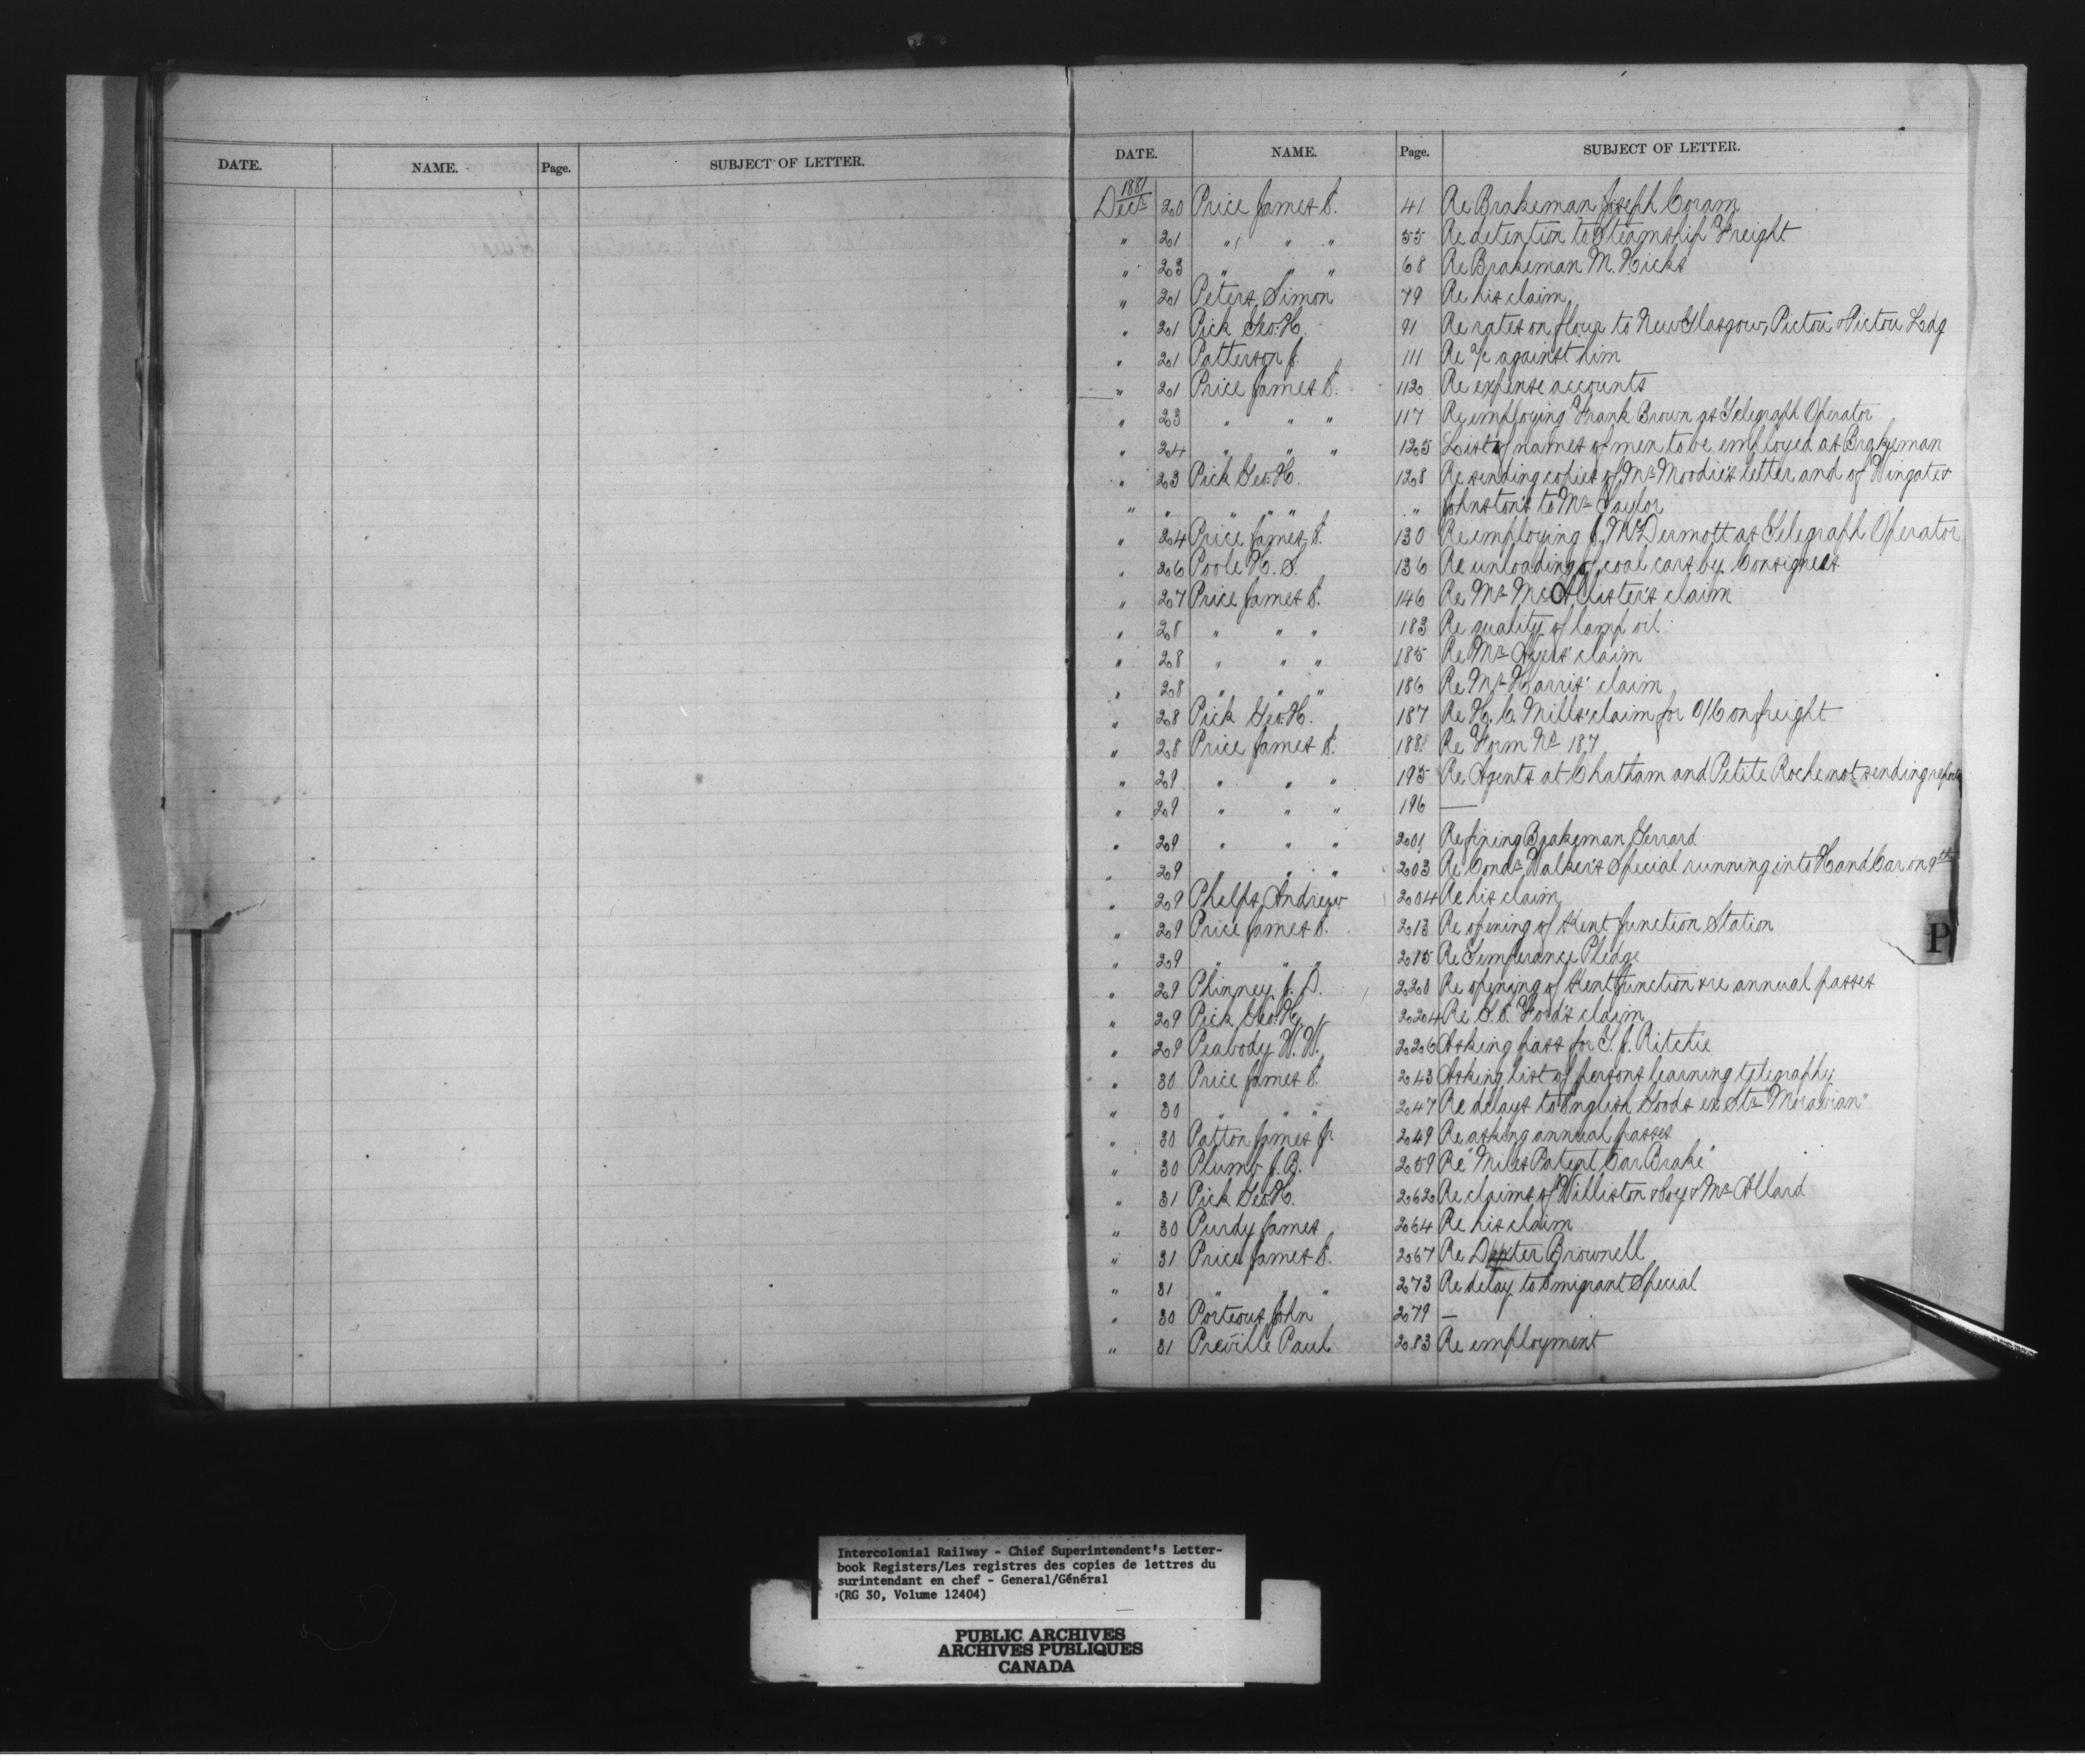 DATE. NAME. Page. SUBJECT OF LETTER.
DATE. NAME. Page. SUBJECT OF LETTER.
1881
Decr 20 Price James S. 41 Re Brakeman Joseph Coram
" 21 " " " 55 Re detention to Steamship Freight
" 23 " " " 68 Re Brakeman M. Hicks
" 21 Peters, Simon 79 Re his claim
" 21 Pick Geo. H. 91 Re rates on flour to New Glasgow, Pictou & Pictou Ldg
" 21 Patterson J. 111 Re a/c against him
" 21 Price James S. 112 Re expense accounts
" 23 " " " 117 Re employing Frank Brown as Telegraph Operator
" 24 " " " 125 List of names of men to be employed as Brakeman
" 23 Pick Geo. H. 128 Re sending copies of Mr Moodie's letter and of Wingate &
" " " " " " Johnston's to Mr Taylor
" 24 Price James S. 130 Re employing J. McDermott as Telegraph Operator
" 26 Poole H. S. 136 Re unloading of coal cars by Consignees
" 27 Price James S. 146 Re Mr McAllister's claim
" 28 " " " 183 Re quality of lamp oil
" 28 " " " 185 Re Mr Ayers' claim
" 28 " " " 186 Re Mr Harris' claim
" 28 Pick Geo. H. 187 Re H. C. Mills' claim for O/C on freight
" 28 Price James S. 188 Re Form No 187
" 29 " " " 195 Re Agents at Chatham and Petite Roche not sending reports
" 29 " " " 196 —
" 29 " " " 201 Re fining Brakeman Gerrard
" 29 " " " 203 Re Condr Walker's Special running into Hand Car on 9th
" 29 Phelps, Andrew 204 Re his claim
" 29 Price James S. 213 Re opening of Kent Junction Station
" 29 " " " 215 Re Temperance Pledge
" 29 Phinney J. D. 220 Re opening of Kent Junction & re annual passes
" 29 Pick Geo. H. 224 Re S. S. Ford's claim
" 29 Peabody W. W. 226 Asking pass for T. J. Ritchie
" 30 Price James S. 243 Asking list of persons learning telegraphy
" 30 " " " 247 Re delays to English Goods ex Str "Moravian"
" 30 Patton James Jr 249 Re asking annual passes
" 30 Plumb J. B. 259 Re "Miles Patent Car Brake"
" 31 Pick Geo. H. 262 Re claims of Williston & Coy & Mr Allard
" 30 Purdy James 264 Re his claim
" 31 Price James S. 267 Re Dexter Brownell
" 31 " " " 273 Re delay to Emigrant Special
" 30 Porteous John 279 —
" 31 Préville Paul 283 Re employment
P
Intercolonial Railway - Chief Superintendent's Letter-
book Registers/Les registres des copies de lettres du
surintendant en chef - General/Général
(RG 30, Volume 12404)
PUBLIC ARCHIVES
ARCHIVES PUBLIQUES
CANADA